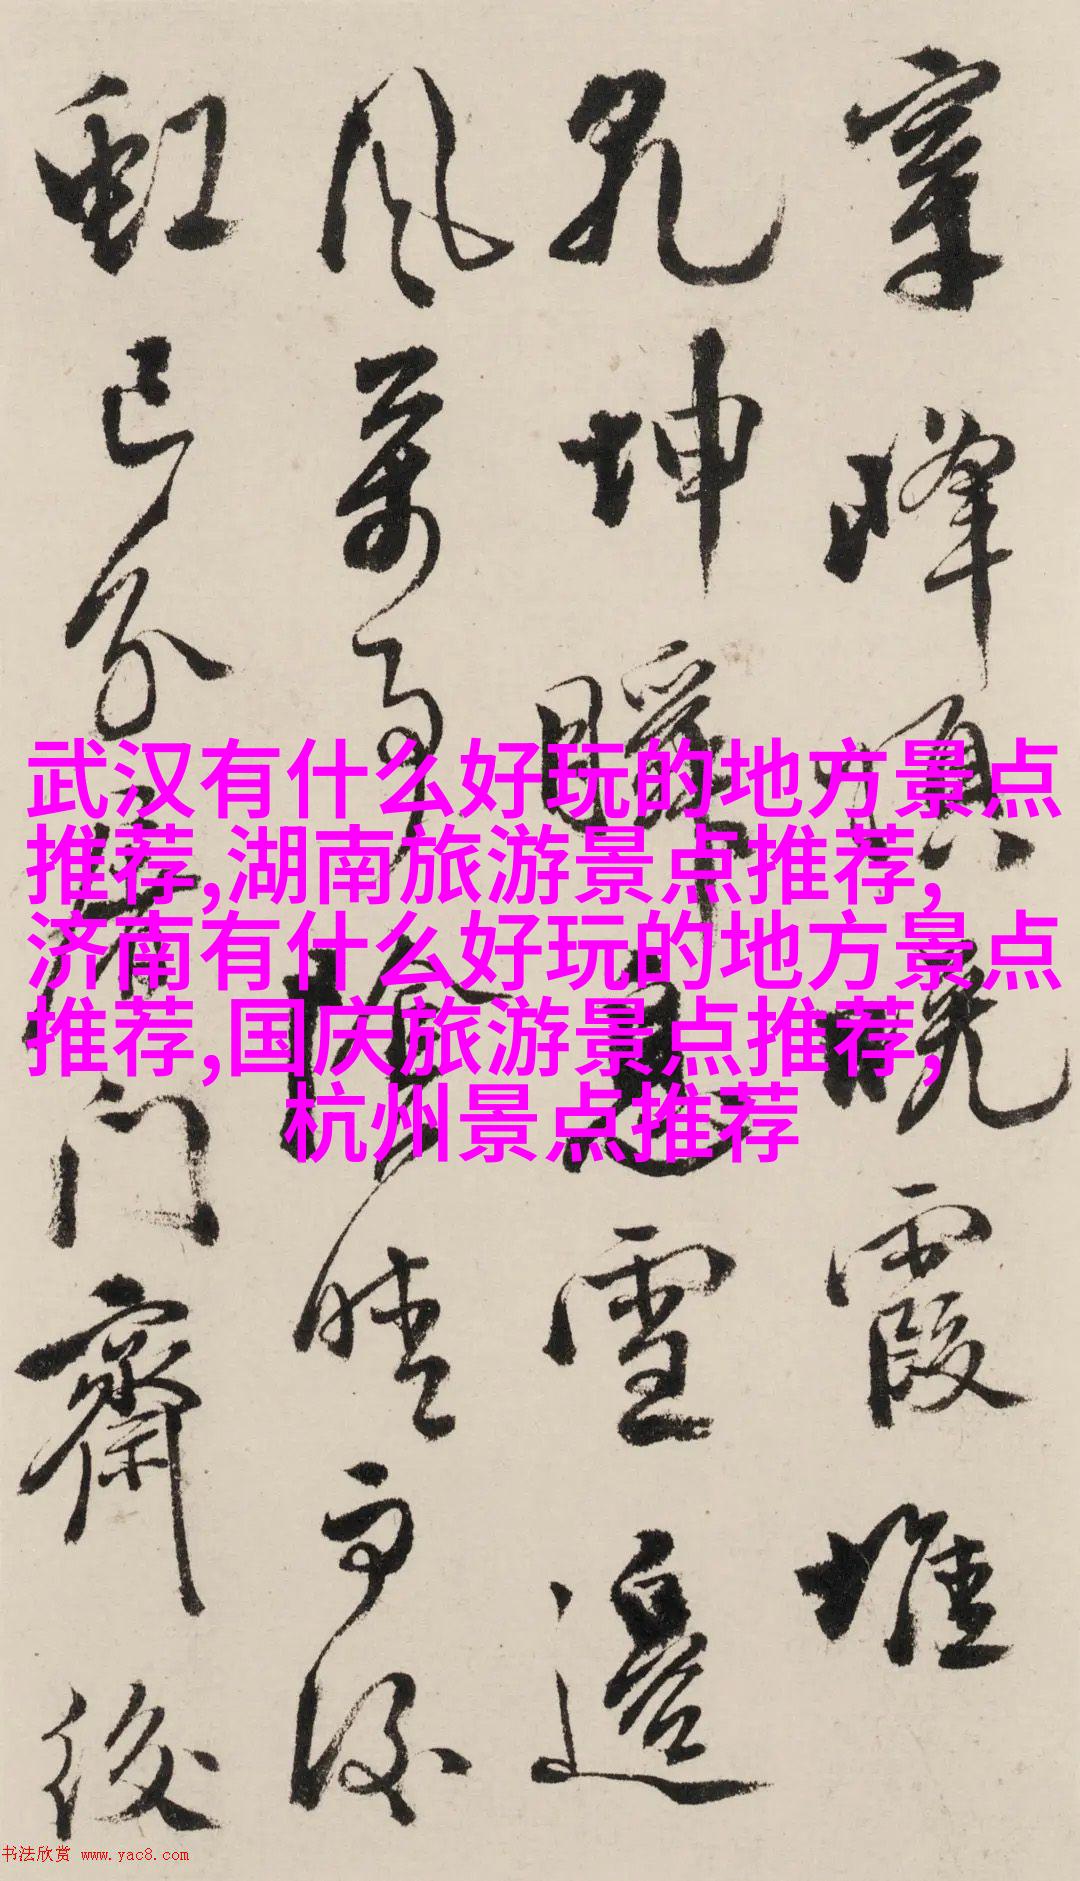 峰頂曉霞堆
坤瞬息雪邊
風萬事陰晴雨後
虹已分
門齋後
武汉有什么好玩的地方景点
推荐,湖南旅游景点推荐,
济南有什么好玩的地方景点
推荐,国庆旅游景点推荐,
杭州景点推荐
书法欣赏 www.yac8.com